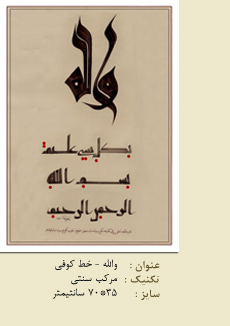 والله
بكل شيء عليم
بسم الله
الرحمن الرحيم
عنوان : والله - خط کوفی
تکنیک : مرکب سنتی
سایز : ۳۵*۷۰ سانتیمتر